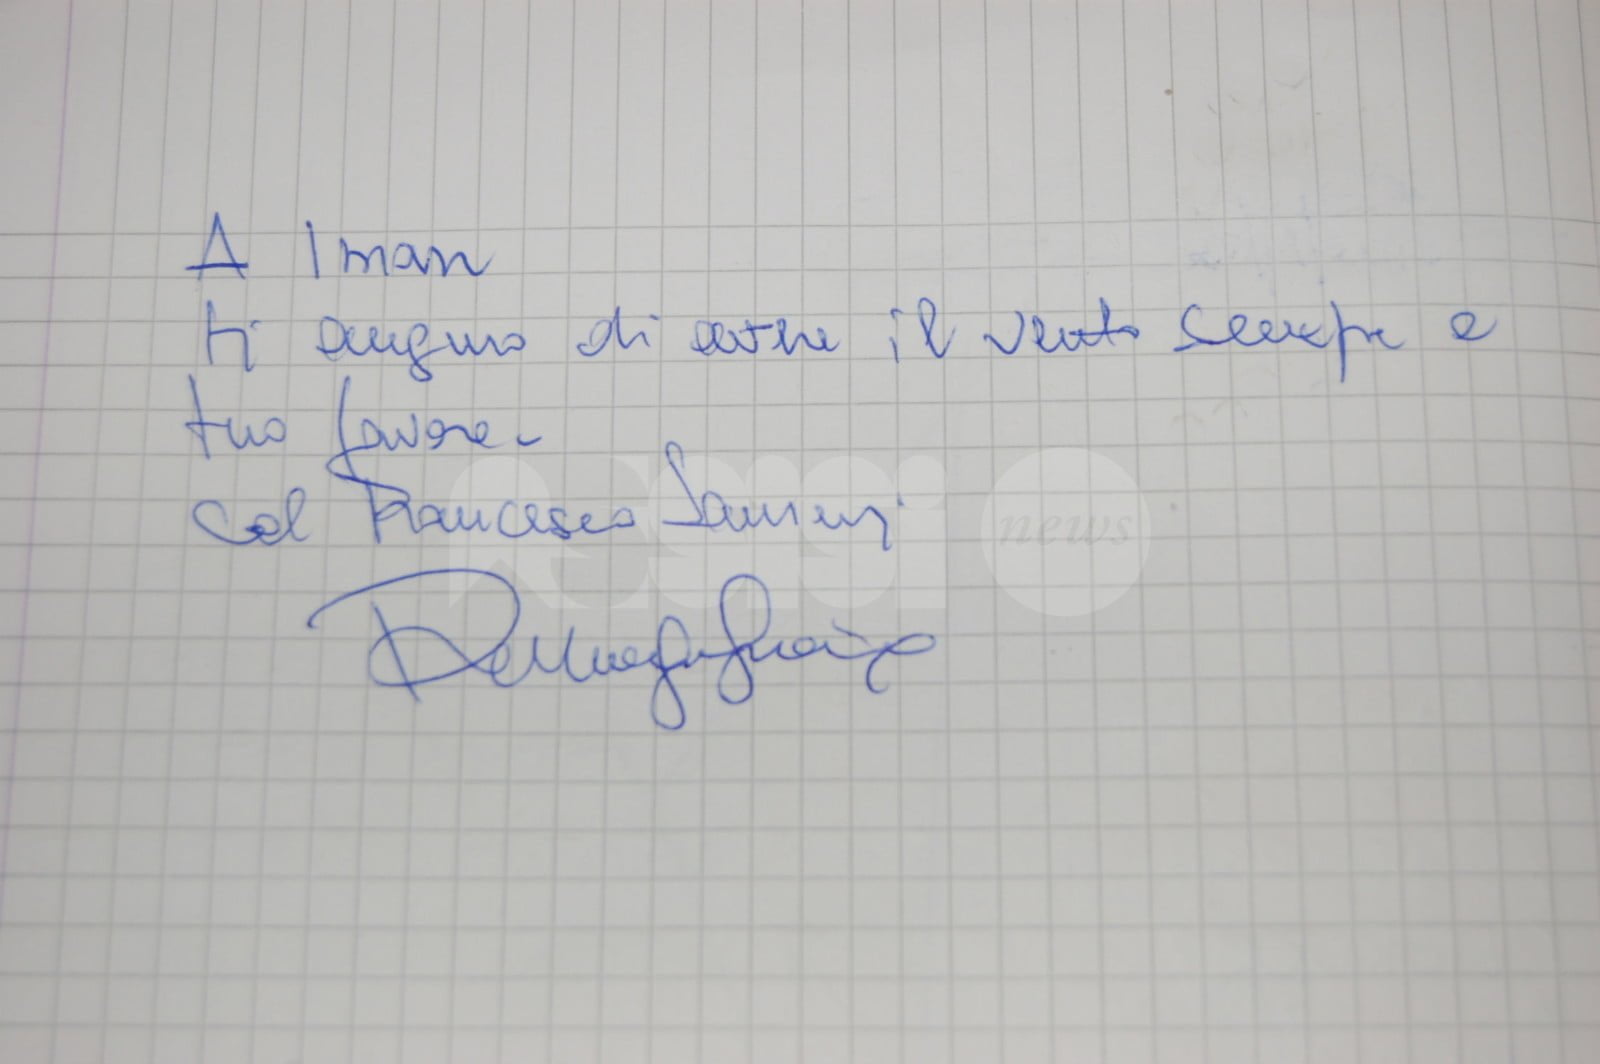 A Iman
ti auguro di avere il vento sempre a
tuo favore.
Col Francesco
assisi news